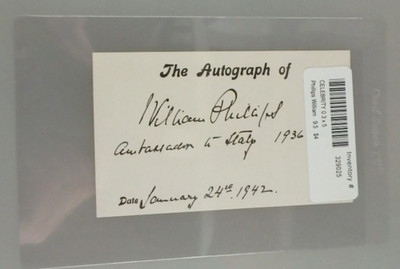 The Autograph of
William Phillips
Ambassador to Italy 1936
Date January 24th, 1942.
CELEBRITY 0 3 x 5
Phillips William 9.5 $4
Inventory #
329025